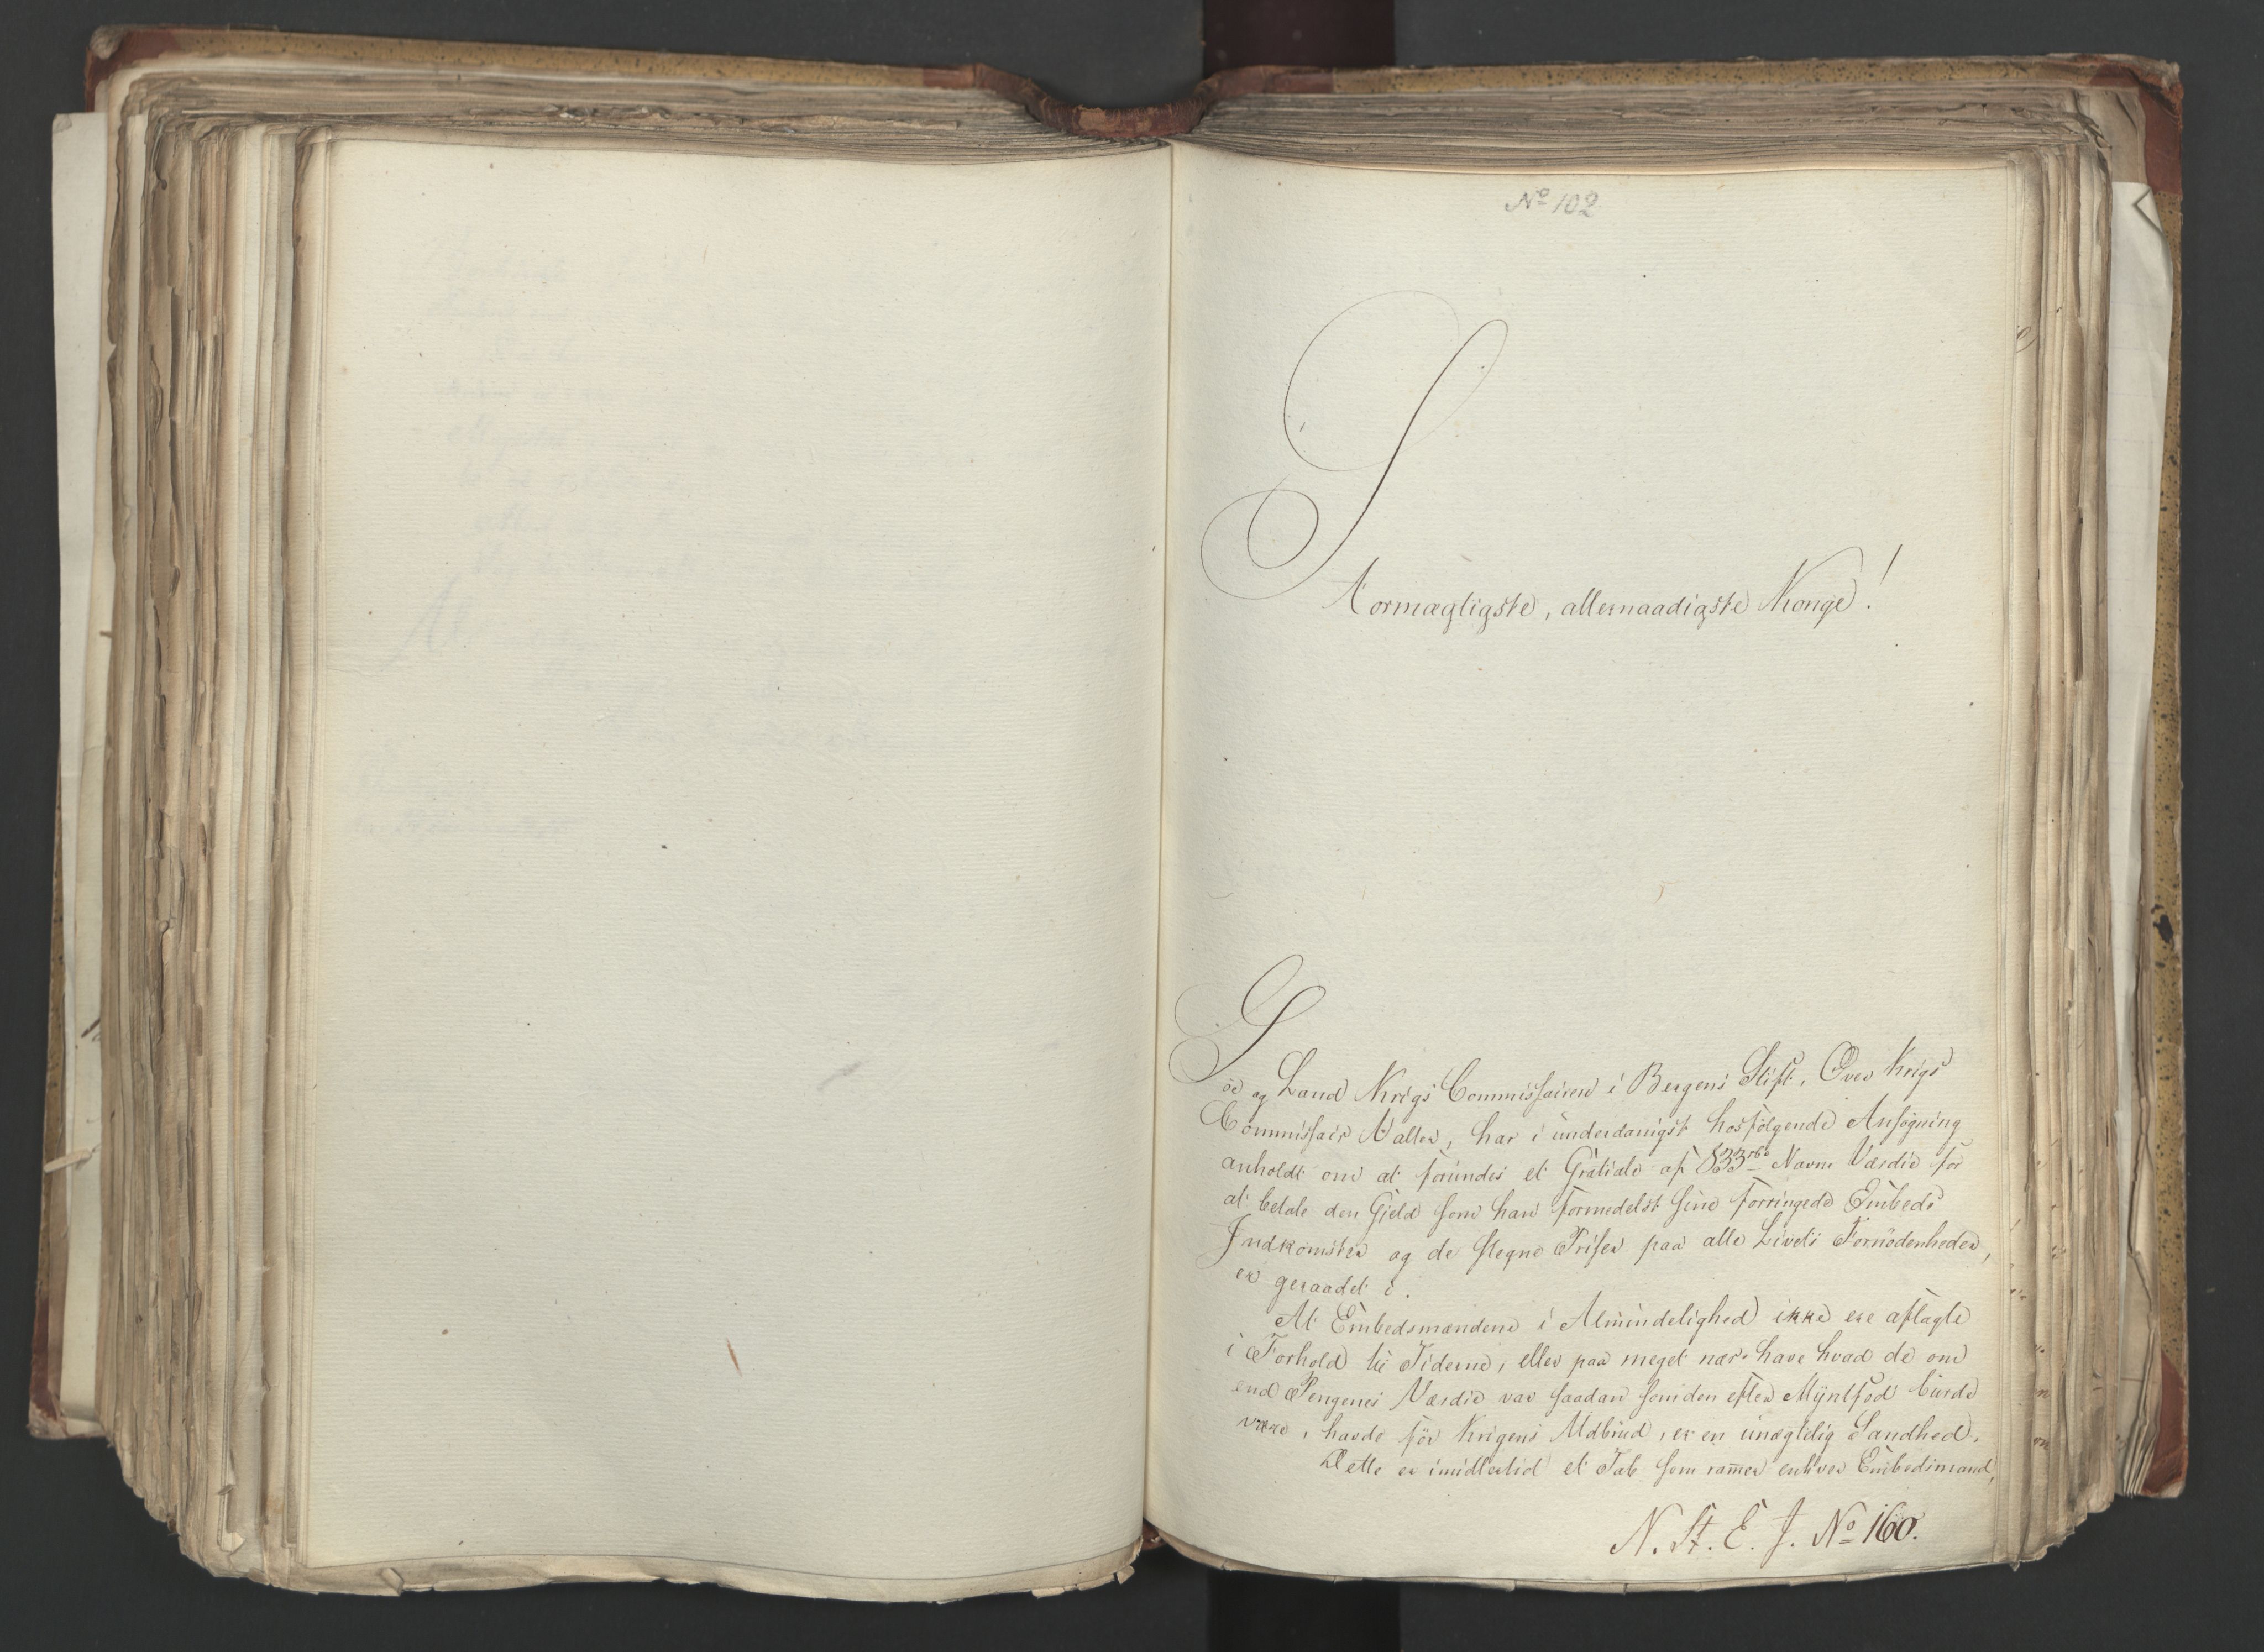 No 102
Stormægtigste, allernaadigste Konge!
Søe og Land Krigs Commissairen i Bergens Stift, Over Krigs
Commissair Valler, har i underdanigst hosfølgende Ansøgning
anholdt om at forundes et Gratiale af 833 rbd Navne Værdie for
at betale den Gield som han formedelst sine forringede Embeds
Indkomster og de stegne Priser paa alle Livets Fornødenheder,
er geraadet i.
At Embedsmændene i Almindelighed ikke ere aflagte
i Forhold til Tiderne, eller paa meget nær have hvad de om
end Pengenes Værdie var saadan som den efter Myntfod burde
være, havde før Krigens Udbrud, er en unægtelig Sandhed.
Dette er imidlertid et Tab som rammer enhver Embedsmand,
N. St. E. J. No 160.